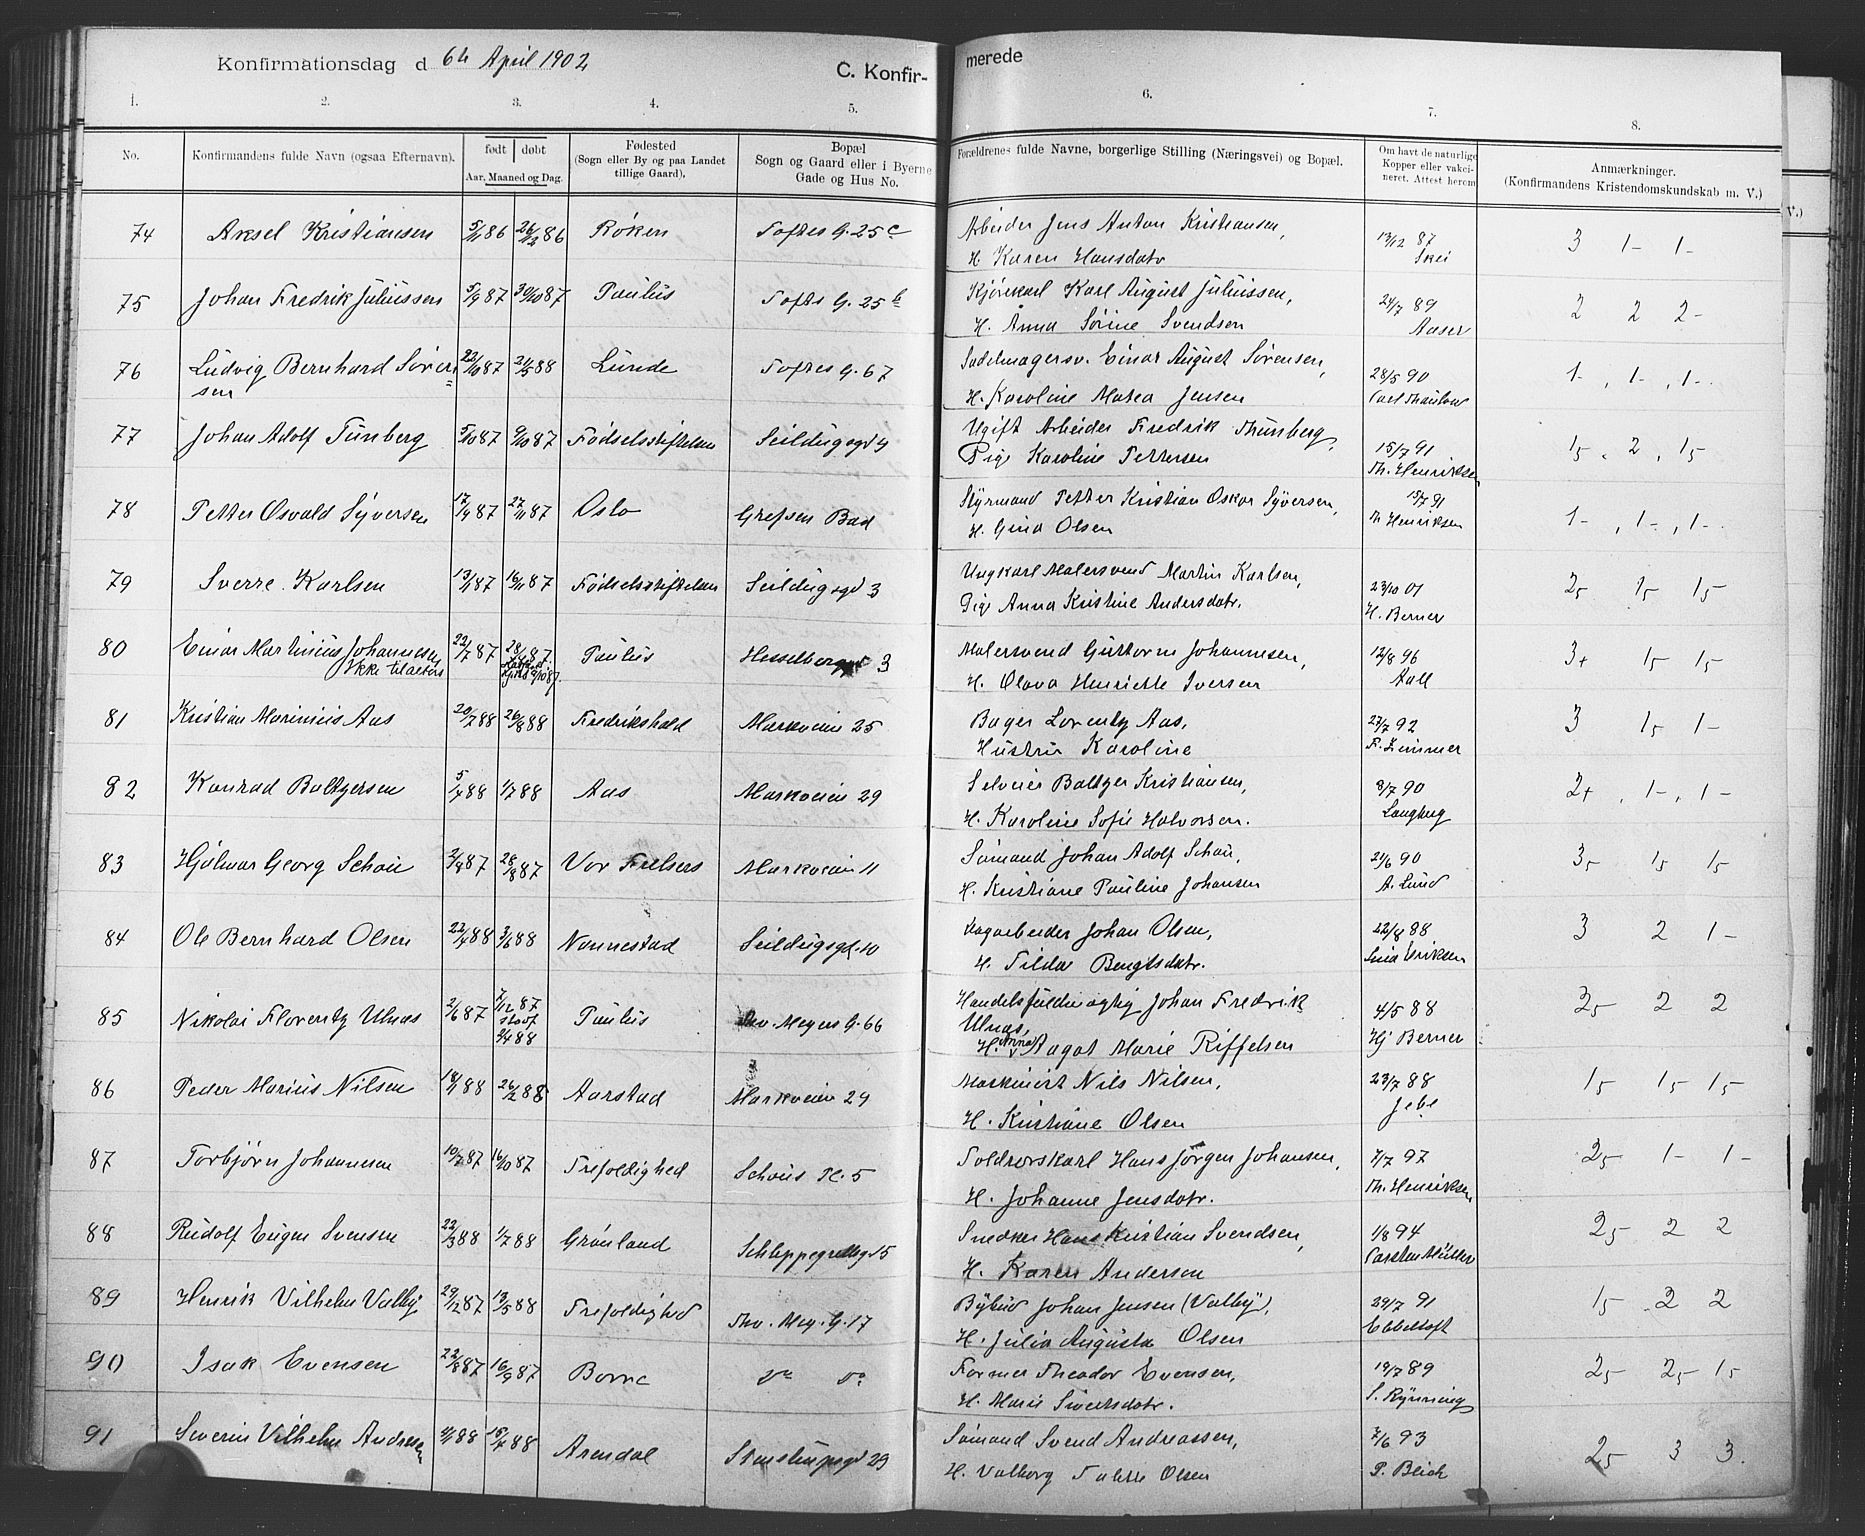 Konfirmationsdag d 6te April 1902
C. Konfir-
merede
1. 2. 3. 4. 5. 6. 7. 8.
No.
Konfirmandens fulde Navn (ogsaa Efternavn).
født døbt
Aar, Maaned og Dag.
Fødested
(Sogn eller By og paa Landet
tillige Gaard).
Bopæl
Sogn og Gaard eller i Byerne
Gade og Hus No.
Forældrenes fulde Navne, borgerlige Stilling (Næringsvei) og Bopæl.
Om havt de naturlige
Kopper eller vakci-
neret. Attest herom
Anmærkninger.
(Konfirmandens Kristendomskundskab m. V.)
V.)
74 Aksel Kristiansen 5/11 86 26/12 86 Røken Toftes G. 25 c Arbeider Jens Anton Kristiansen, 13/12 87 3 1- 1-
H. Karen Hansdatr Skei
75 Johan Fredrik Juliussen 5/9 87 30/10 87 Paulus Toftes G. 25 b Kjørekarl Karl August Juliussen, 24/7 89 2 2 2-
H. Anna Sørine Svendsen Aaser
76 Ludvig Bernhard Søren= 22/10 87 21/5 88 Lunde Toftes G. 67 Sadelmagersv. Einar August Sørensen, 28/5 90 1-, 1-, 1-.
sen H. Karoline Matea Jensen Carl Thaulow
77 Johan Adolf Tunberg 5/10 87 9/10 87 Fødselsstiftelsen Seildugsgd 9 Ugift Arbeider Fredrik Thunberg, 15/7 91 15, 2, 15
Pige Karoline Pettersen Th. Henriksen
78 Petter Osvald Syversen 17/9 87 27/11 87 Oslo Grefsen Bad Styrmand Petter Kristian Oskar Syversen, 15/7 91 1-, 1-, 1-.
H. Gina Olsen Th Henriksen
79 Sverre Karlsen 13/11 87 16/11 87 Fødselsstiftelsen Seildugsgd 3 Ungkarl Malersvend Martin Karlsen, 23/10 01 25 15 15
Pige Anna Kristine Andersdatr. H. Berner
80 Einar Martinius Johannesen 22/7 87 Paulus Hesselbergsgd 3 Malersvend Guttorm Johannesen, 12/8 96 3+ 15 15
Ikke tilalters H. Olava Henriette Iversen Aall
81 Kristian Marinius Aas 20/7 88 26/8 88 Fredrikshald Markveien 25 Bager Lorentz Aas, 27/7 92 3 15 1-
Hustru Karoline F. Zimmer
82 Konrad Baltzersen 5/4 88 1/7 88 Aas Markveien 29 Selveier Baltzer Kristiansen, 8/7 90 2+, 1-, 1-
H. Karoline Sofie Halvorsen. Langberg
83 Hjalmar Georg Schou 2/4 87 28/8 87 Vor Frelsers Markveien 11 Sømand Johan Adolf Schou, 21/6 90 35 15 15
H. Kristiane Pauline Johansen A. Lund
84 Ole Bernhard Olsen 22/4 88 3/6 88 Nannestad Seildugsgd. 10 Dagarbeider Johan Olsen, 22/8 88 3 2 1-
H. Tilda Bengtsdatr. Eriksen
85 Nikolai Florentz Ulnæs 2/6 87 7/12 87 Paulus Thv. Meyers G. 66 Handelsfuldmægtig Johan Fredrik 4/5 88 25 2 2
stadf 2/4 88 Ulnæs,
H. Anna Aagot Marie Riffelsen Hj Berner
86 Peder Marius Nilsen 18/1 88 26/2 88 Aarstad Markveien 29 Maskinist Nils Nilsen, 23/7 88 15 15 15
H. Kristiane Olsen Jebe
87 Torbjørn Johannesen 10/7 87 16/10 87 Trefoldighed Schous Pl. 5 Toldrorskarl Hans Jørgen Johansen, 7/7 97 25 1- 1-
H. Johanne Jensdatr. Th. Henriksen
88 Rudolf Eugen Svensen 22/3 88 1/7 88 Grønland Schleppegrellsgd 15 Snedker Hans Kristian Svendsen, 1/8 94 25 2 2
H. Karen Andersen Carsten Müller
89 Henrik Vilhelm Valby 29/12 87 13/5 88 Trefoldighed Thv. Mey. G. 17 Bybud Johan Jensen (Valby), 29/7 91 15 2 2
H. Julia Augusta Olsen Ebbeltoft
90 Isak Evensen 22/8 87 16/9 87 Borre Do Do Former Theodor Evensen, 19/7 89 25 25 15
H. Marie Sivertsdatr. S. Rynning
91 Severin Vilhelm Andresen 4/1 88 15/4 88 Arendal Stenstrupsgd 29 Sømand Svend Andreassen, 7/6 93 25 3 3.
H. Valborg Talette Olsen P. Blich